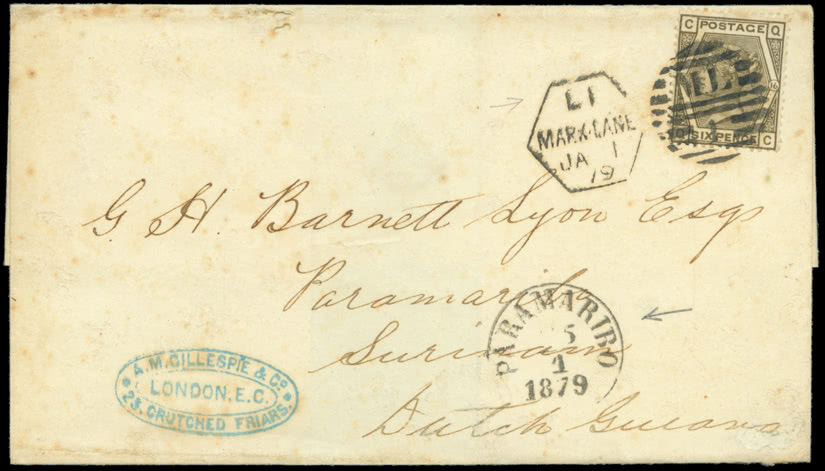 C POSTAGE Q
16
SIX PENCE C
L1
MARK-LANE
JA 1
79
G H. Barnett Lyon Esqr
Paramaribo
Surinam
Dutch Gueana
PARAMARIBO
5
1
1879
A. M. GILLESPIE & Co
LONDON. E.C.
23. CRUTCHED FRIARS.